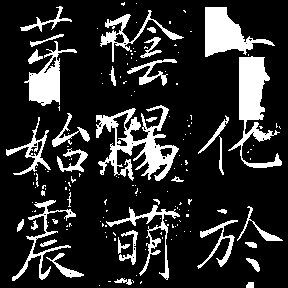 化於
陰陽萌
芽始震